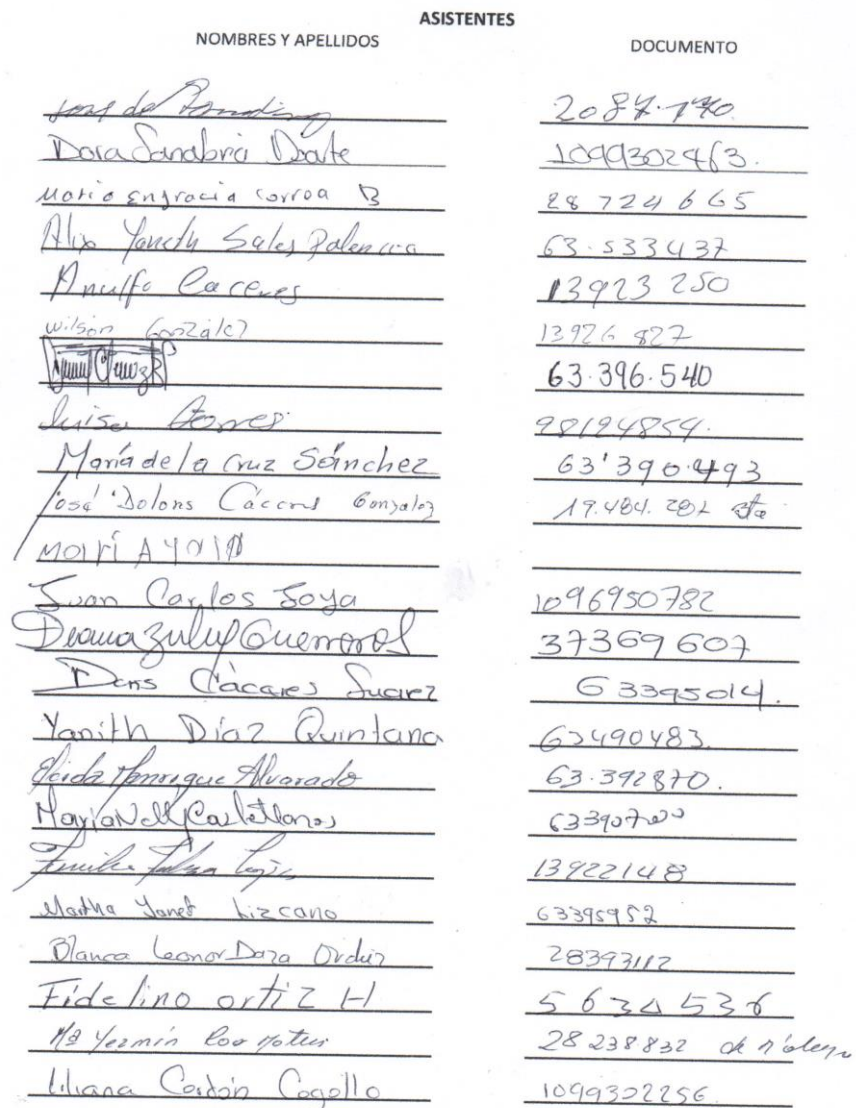 ASISTENTES
NOMBRES Y APELLIDOS DOCUMENTO
2087.170.
Dora Sanabria Duarte 1099302463.
Maria Engracia Correa B 28 724 665
Alix Yaneth Sales Palencia 63.533437
Arnulfo Caceres 13923 250
Wilson Gonzalez 13926 827
63.396.540
Luisa Torres 98194854.
María de la Cruz Sánchez 63'390.493
José Dolores Cáceres Gonzalez 19.484.282
Juan Carlos Joya 1096950782
Diana Zuluy Guerrero 37369607
Doris Cáceres Suarez 63395014.
Yanith Díaz Quintana 63490483.
Manrique Alvarado 63.392870.
Maria Nelly Castellanos 63390700
13922148
Martha Yanet Lizcano 63395952
Blanca Leonor Daza Orduz 28393112
Fidelino ortiz H 5634536
Mª Yezmin 28 238832 de
Liliana Cordón Cogollo 1099302256.